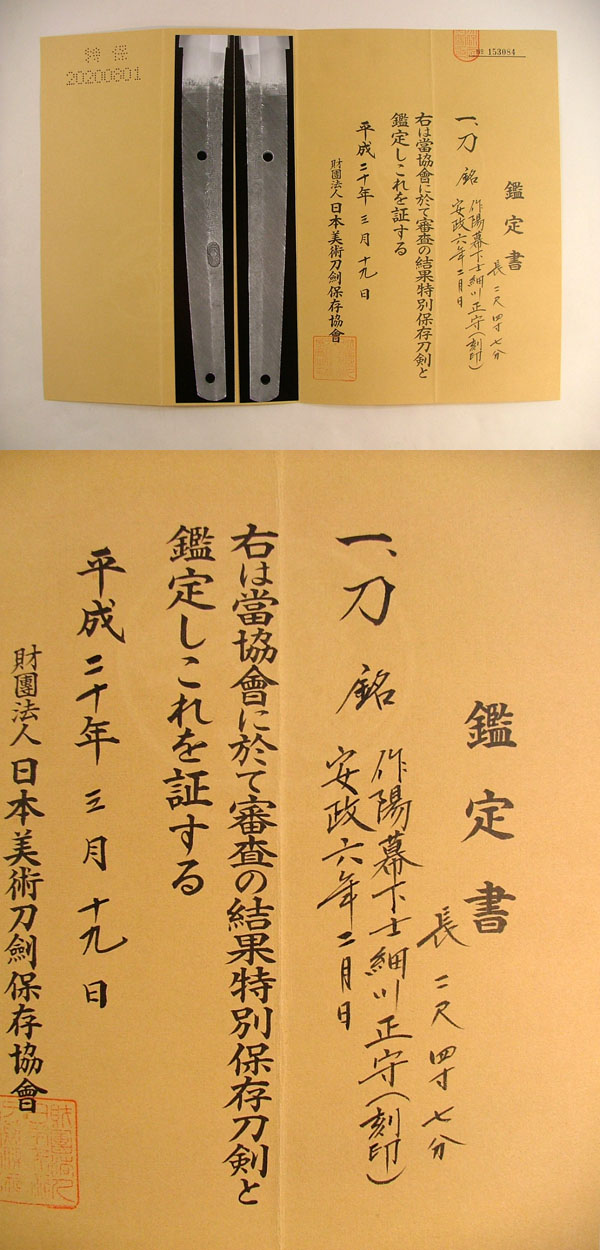 特保
20200801
No 153084
鑑定書
長 二尺四寸七分
一、刀 銘 作陽幕下士細川正守(刻印)
安政六年二月日
右は當協會に於て審査の結果特別保存刀剣と
鑑定しこれを証する
平成二十年 三月 十九日
財團法人 日本美術刀劍保存協會
鑑定書
長 二尺四寸七分
一、刀 銘 作陽幕下士細川正守(刻印)
安政六年二月日
右は當協會に於て審査の結果特別保存刀剣と
鑑定しこれを証する
平成二十年 三月 十九日
財團法人 日本美術刀劍保存協會